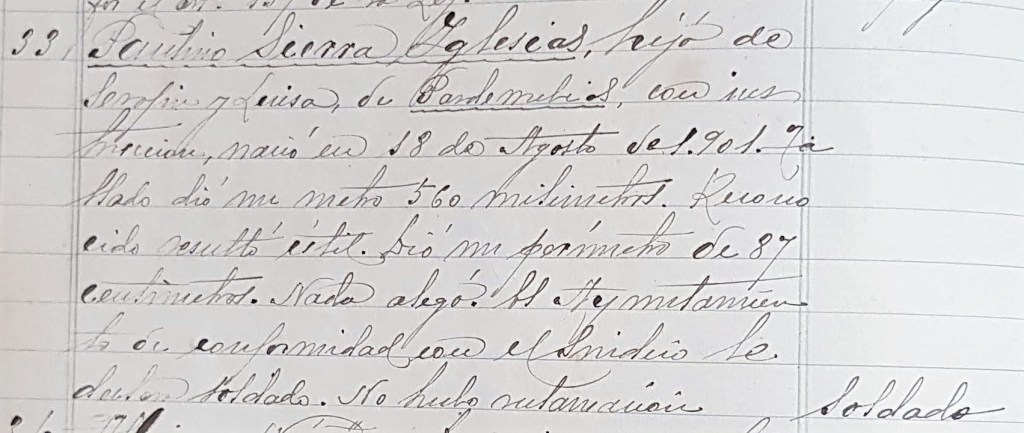 por el art. de la Ley.
33, Paulino Sierra Yglesias, hijo de
Serafin y Luisa, de Pardemelios, con ins
truccion, nació en 18 de Agosto de 1.901. Ta
llado dió un metro 560 milimetros. Recono
cido resultó útil. Dió un perímetro de 87
centimetros. Nada alegó. El Ayuntamien
to de conformidad con el Sindico le
declaró soldado. No hubo reclamación
soldado